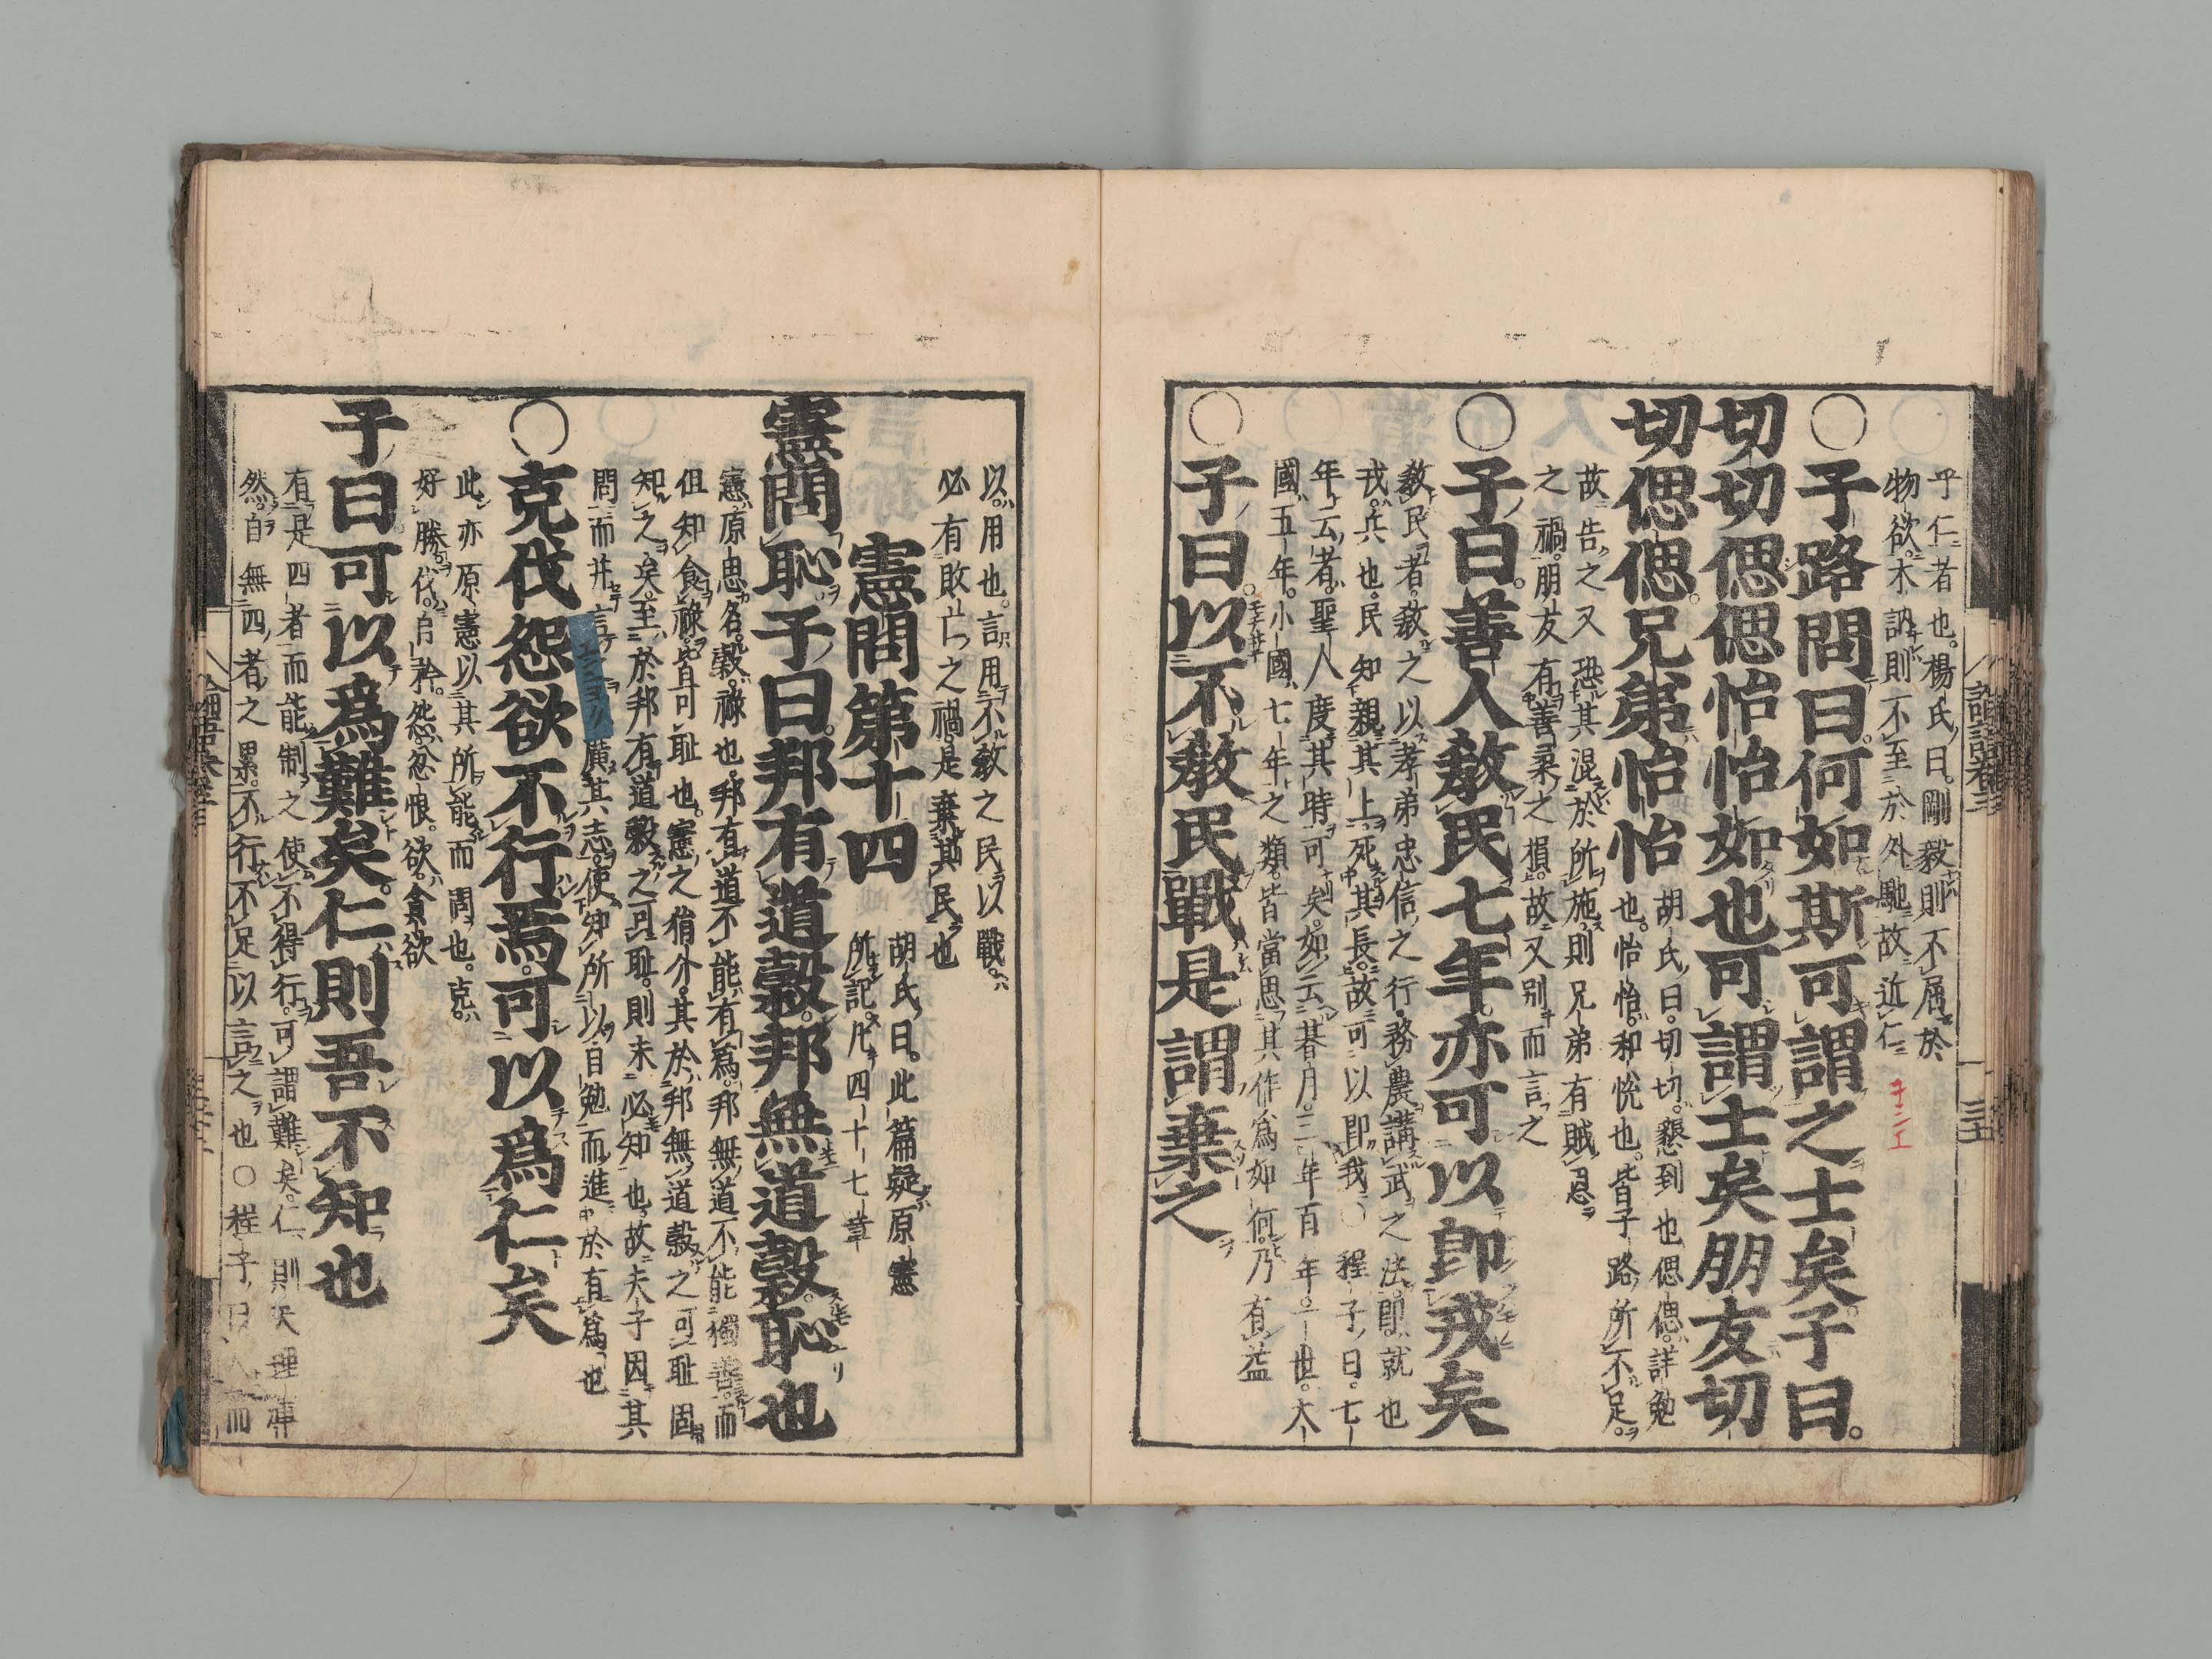 乎仁者也。楊氏曰。剛毅則不屈於
物欲。木訥則不至於外馳故近仁
○子路問曰。何如斯可謂之士矣子曰。
切切偲偲怡怡如也可謂士矣朋友切
切偲偲。兄弟怡怡
胡氏曰。切切。懇到也偲偲。詳勉
也。怡怡。和悅也。皆子路所不足。
故告之又恐其混於所施。則兄弟有賊恩
之禍。朋友有善柔之損。故又別而言之
○子曰。善人敎民七年。亦可以卽戎矣
敎民者。敎之以孝弟忠信之行。務農講武之法。卽就也
戎。兵也。民知親其上。死其長。故可以卽戎○程子曰。七
年云者。聖人度其時可矣。如云朞月。三年百年。一世。大
國五年。小國七年之類。皆當思其作爲如何。乃有益
○子曰。以不敎民戰是謂棄之
以。用也。言用不敎之民以戰。
必有敗亡之禍。是棄其民也
憲問第十四
胡氏曰。此篇疑原憲
所記。凡四十七章
憲問恥子曰。邦有道穀。邦無道穀。恥也
憲。原思名。穀。祿也。邦有道不能有爲。邦無道不能獨善。而
但知食祿。皆可恥也。憲之狷介。其於邦無道穀之可恥固
知之矣。至於邦有道穀之可恥。則未必知也。故夫子因其
問而幷言廣其志。使知所以自勉而進於有爲也
○克伐怨欲不行焉。可以爲仁矣
此亦原憲以其所能而問也。克。
好勝。伐。自矜。怨。忿恨。欲。貪欲
子曰可以爲難矣。仁則吾不知也
有是四者而能制之使不得行。可謂難矣。仁則天理渾
然。自無四者之累。不行不足以言之也○程子曰人而